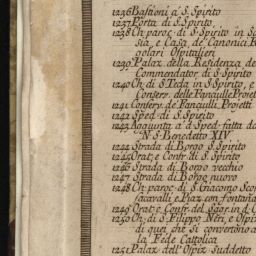 1236 Bastioni a S. Spirito
1237 Porta di S. Spirito
1238 Ch. paroc. di S. Spirito in Sa
sia, e Casa de Canonici R
golari Ospitalieri
1239 Palaz. della Residenza de
Commendator di S. Spirito
1240 Ch. di S. Tecla in S. Spirito, e
Conserv. delle Fanciulle Projet
1241 Conserv. de Fanciulli Projetti
1242 Sped. di S. Spirito
1243 Aggiunta a d. Sped. fatta da
N. S. Benedetto XIV
1244 Strada di Borgo S. Spirito
1245 Orat. e Confr. di S. Spirito
1246 Strada di Borgo vecchio
1247 Strada di Borgo nuovo
1248 Ch. paroc. di S. Giacomo Scos
sacavalli e Piaz. con fontana
1249 Orat. e Confr. del Sagr. in d. C
1250 Ch. di S. Filippo Neri, e Ospiz
di quei che si convertono a
la Fede Cattolica
1251 Palaz. dell' Ospiz. Suddetto